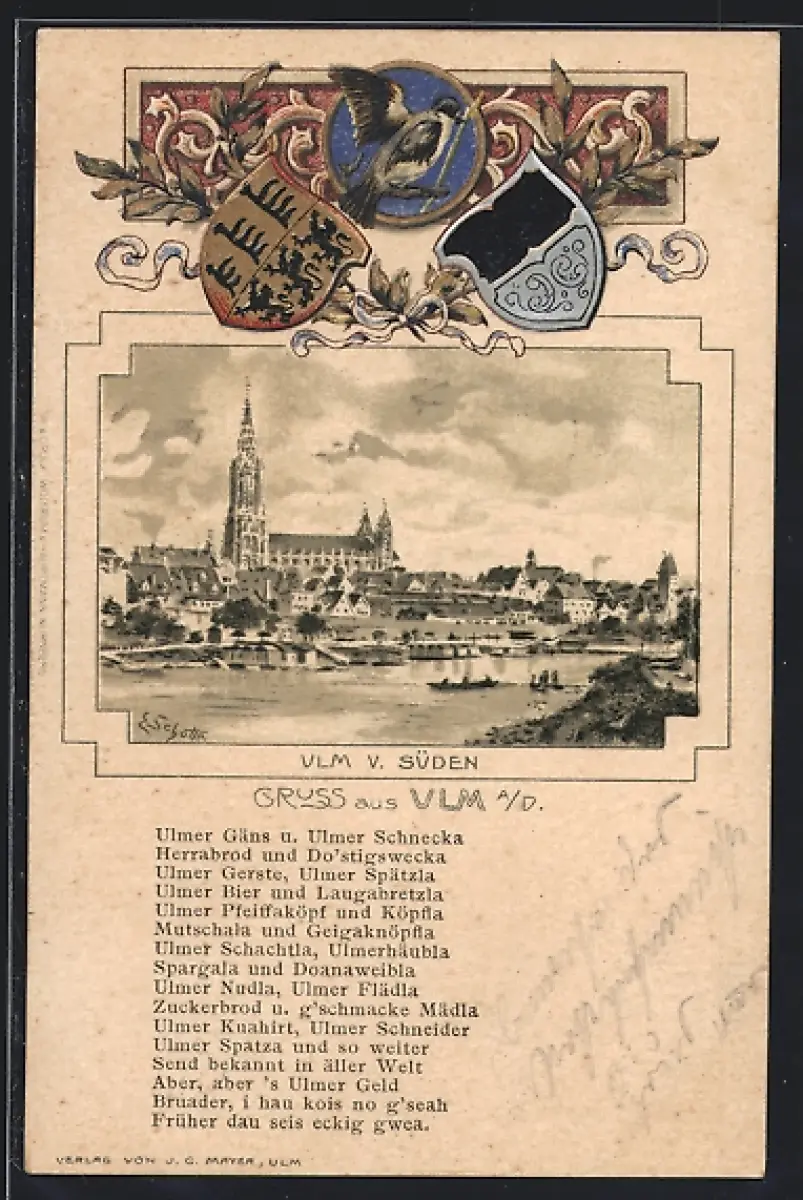 E. Schott
VLM V. SÜDEN
GRUSS aus VLM A/D.
Ulmer Gäns u. Ulmer Schnecka
Herrabrod und Do'stigswecka
Ulmer Gerste, Ulmer Spätzla
Ulmer Bier und Laugabretzla
Ulmer Pfeiffaköpf und Köpfla
Mutschala und Geigaknöpfla
Ulmer Schachtla, Ulmerhäubla
Spargala und Doanaweibla
Ulmer Nudla, Ulmer Flädla
Zuckerbrod u. g'schmacke Mädla
Ulmer Kuahirt, Ulmer Schneider
Ulmer Spatza und so weiter
Send bekannt in äller Welt
Aber, aber 's Ulmer Geld
Bruader, i hau kois no g'seah
Früher dau seis eckig gwea.
VERLAG VON J. C. MAYER, ULM